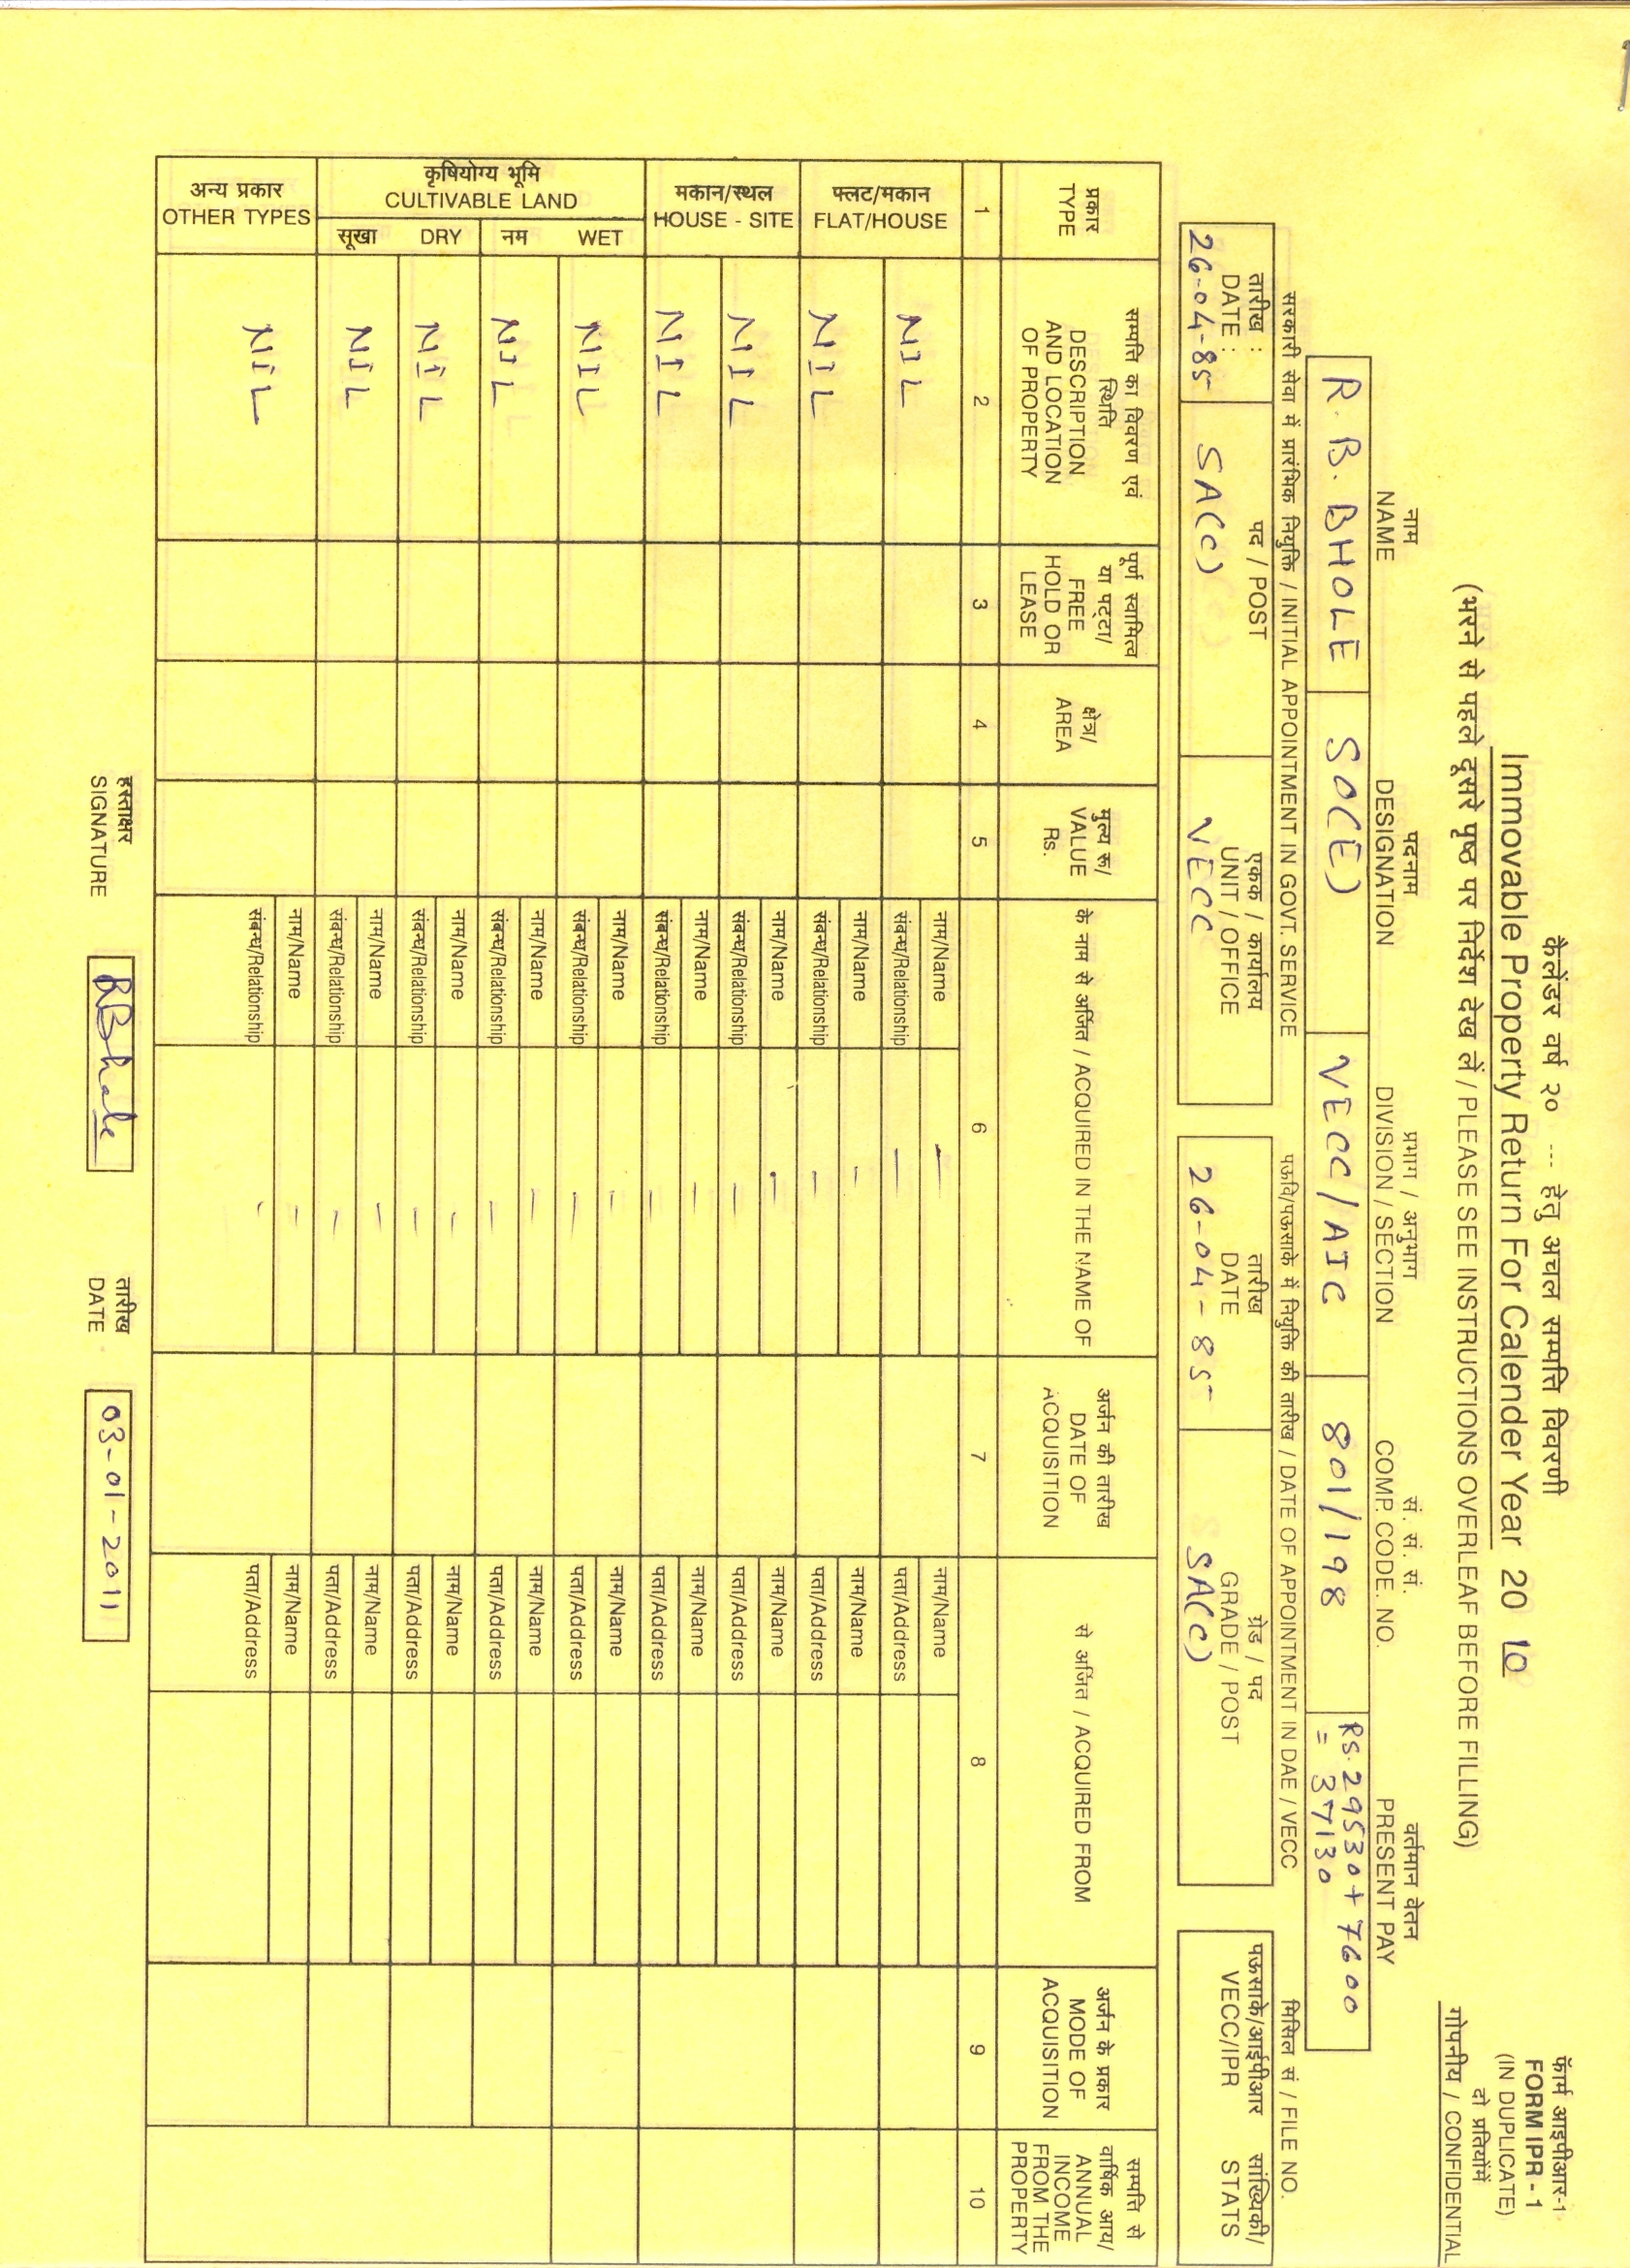 फॉर्म आइपीआर-1
FORM IPR - 1
(IN DUPLICATE)
दो प्रतियोंमें
गोपनीय / CONFIDENTIAL
कैलेंडर वर्ष २० --- हेतु अचल सम्पत्ति विवरणी
Immovable Property Return For Calender Year 20 10
(भरने से पहले दूसरे पृष्ठ पर निर्देश देख लें / PLEASE SEE INSTRUCTIONS OVERLEAF BEFORE FILLING)
नाम पदनाम प्रभाग / अनुभाग सं. सं. सं. वर्तमान वेतन
NAME DESIGNATION DIVISION / SECTION COMP. CODE. NO. PRESENT PAY
R. B. BHOLE SO(E) VECC/AIC 801/198 RS. 29530 + 7600
= 37130
सरकारी सेवा में प्रारंभिक नियुक्ति / INITIAL APPOINTMENT IN GOVT. SERVICE पऊवि/पऊसाके में नियुक्ति की तारीख / DATE OF APPOINTMENT IN DAE / VECC मिसिल सं / FILE NO.
तारीख : पद / POST एकक / कार्यालय तारीख ग्रेड / पद पऊसाके/आईपीआर सांख्यिकी/
DATE : UNIT / OFFICE DATE GRADE / POST VECC/IPR STATS
26-04-85 SA(C) VECC 26-04-85 SA(C)
प्रकार सम्पत्ति का विवरण एवं स्थिति पूर्ण स्वामित्व या पट्टा/ क्षेत्र/ मुल्य रू/ के नाम से अर्जित / ACQUIRED IN THE NAME OF अर्जन की तारीख से अर्जित / ACQUIRED FROM अर्जन के प्रकार सम्पत्ति से वार्षिक आय/
TYPE DESCRIPTION AND LOCATION OF PROPERTY FREE HOLD OR LEASE AREA VALUE Rs. DATE OF ACQUISITION MODE OF ACQUISITION ANNUAL INCOME FROM THE PROPERTY
1 2 3 4 5 6 7 8 9 10
फ्लट/मकान
FLAT/HOUSE
NIL नाम/Name — नाम/Name
संबन्ध/Relationship — पता/Address
NIL नाम/Name — नाम/Name
संबन्ध/Relationship — पता/Address
मकान/स्थल
HOUSE - SITE
NIL नाम/Name — नाम/Name
संबन्ध/Relationship — पता/Address
NIL नाम/Name — नाम/Name
संबन्ध/Relationship — पता/Address
कृषियोग्य भूमि
CULTIVABLE LAND
नम WET
NIL नाम/Name — नाम/Name
संबन्ध/Relationship — पता/Address
NIL नाम/Name — नाम/Name
संबन्ध/Relationship — पता/Address
सूखा DRY
NIL नाम/Name — नाम/Name
संबन्ध/Relationship — पता/Address
NIL नाम/Name — नाम/Name
संबन्ध/Relationship — पता/Address
अन्य प्रकार
OTHER TYPES
NIL नाम/Name — नाम/Name
संबन्ध/Relationship — पता/Address
हस्ताक्षर तारीख
SIGNATURE RBhole DATE 03-01-2011